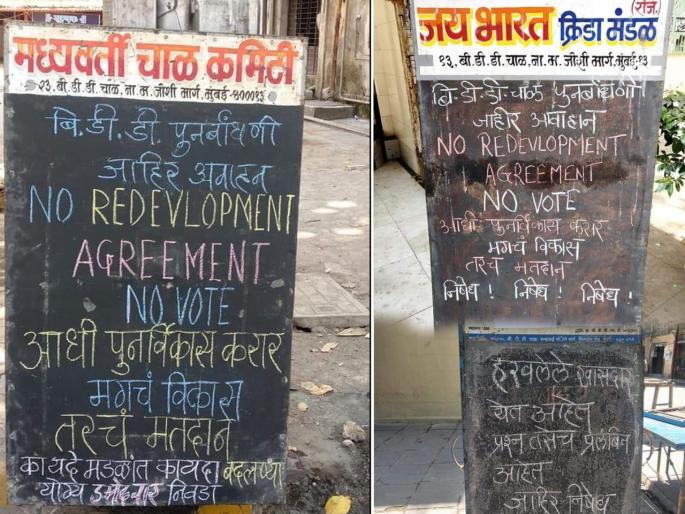 मध्यवर्ती चाळ कमिटी
१३, बी.डी.डी. चाळ, ना.म. जोशी मार्ग, मुंबई-४०००१३
बि.डी.डी. पुनबांधणी
जाहिर अवाहन
NO REDEVLOPMENT
AGREEMENT
NO VOTE
आधी पुनर्विकास करार
मगचं विकास
तरचं मतदान
कायदे मंडळांत कायदा बदलण्या
योग्य उमेदवार निवडा
(रजि.)
जय भारत क्रिडा मंडळ
१३, बी. डी. डी. चाळ, ना. म. जोशी मार्ग, मुंबई-१३
बि.डी.डी. चाळ पुनबांधणी
जाहिर आवाहान
NO REDEVLOPMENT
AGREEMENT
NO VOTE
आधी पुनर्विकास करार
मगचं विकास
तरचं मतदान
निषेध ! निषेध ! निषेध !
हरवलेले खासदार
येत आहेत
प्रश्न तसेच प्रलंबित
आहेत
जाहिर निषेध